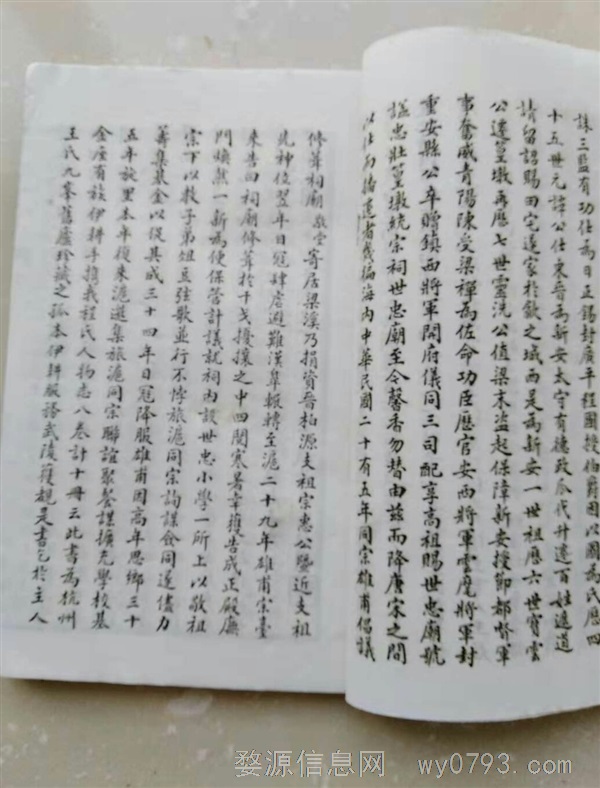 誅三監有功仕為日正錫封廣平程國授伯爵因以國為氏歷四
十五世元譚公仕東晉為新安太守有德政瓜代升遷百姓遮道
請留詔賜田宅遂家於歙之城西是為新安一世祖歷六世寶雲
公遷篁墩再歷七世靈洗公值梁末盜起保障新安授節都督軍
事奮威青陽陳受梁禪為佐命功臣歷官安西將軍雲麾將軍封
重安縣公卒贈鎮西將軍開府儀同三司配享高祖賜世忠廟號
諡忠壯篁墩統宗祠世忠廟至今馨香勿替由茲而降唐宋之間
以仕而播遷者幾徧海內中華民國二十有五年同宗雄甫倡議
修葺祠廟敬堂寄居梁溪乃捐資晉柏源支祖宗惠公暨近支祖
先神位翌年日寇肆虐避難漢皋輾轉至滬二十九年雄甫宗臺
來告曰祠廟修葺於干戈擾攘之中四閱寒暑幸獲告成正殿廡
門煥然一新為便保管計議就祠內設世忠小學一所上以敬祖
宗下以教子弟俎豆弦歌並行不悖旅滬同宗詢謀僉同遂儘力
籌集基金以促其成三十四年日寇降服雄甫因高年思鄉三十
五年旋里本年復來滬邀集旅滬同宗聯誼聚餐謀擴充學校基
金座有族伊耕手攜我程氏人物志八卷計十冊云此書為杭州
王氏九峯舊廬珍藏之孤本伊耕服務武陵獲覩是書乞於主人
婺源信息网 wy0793.com